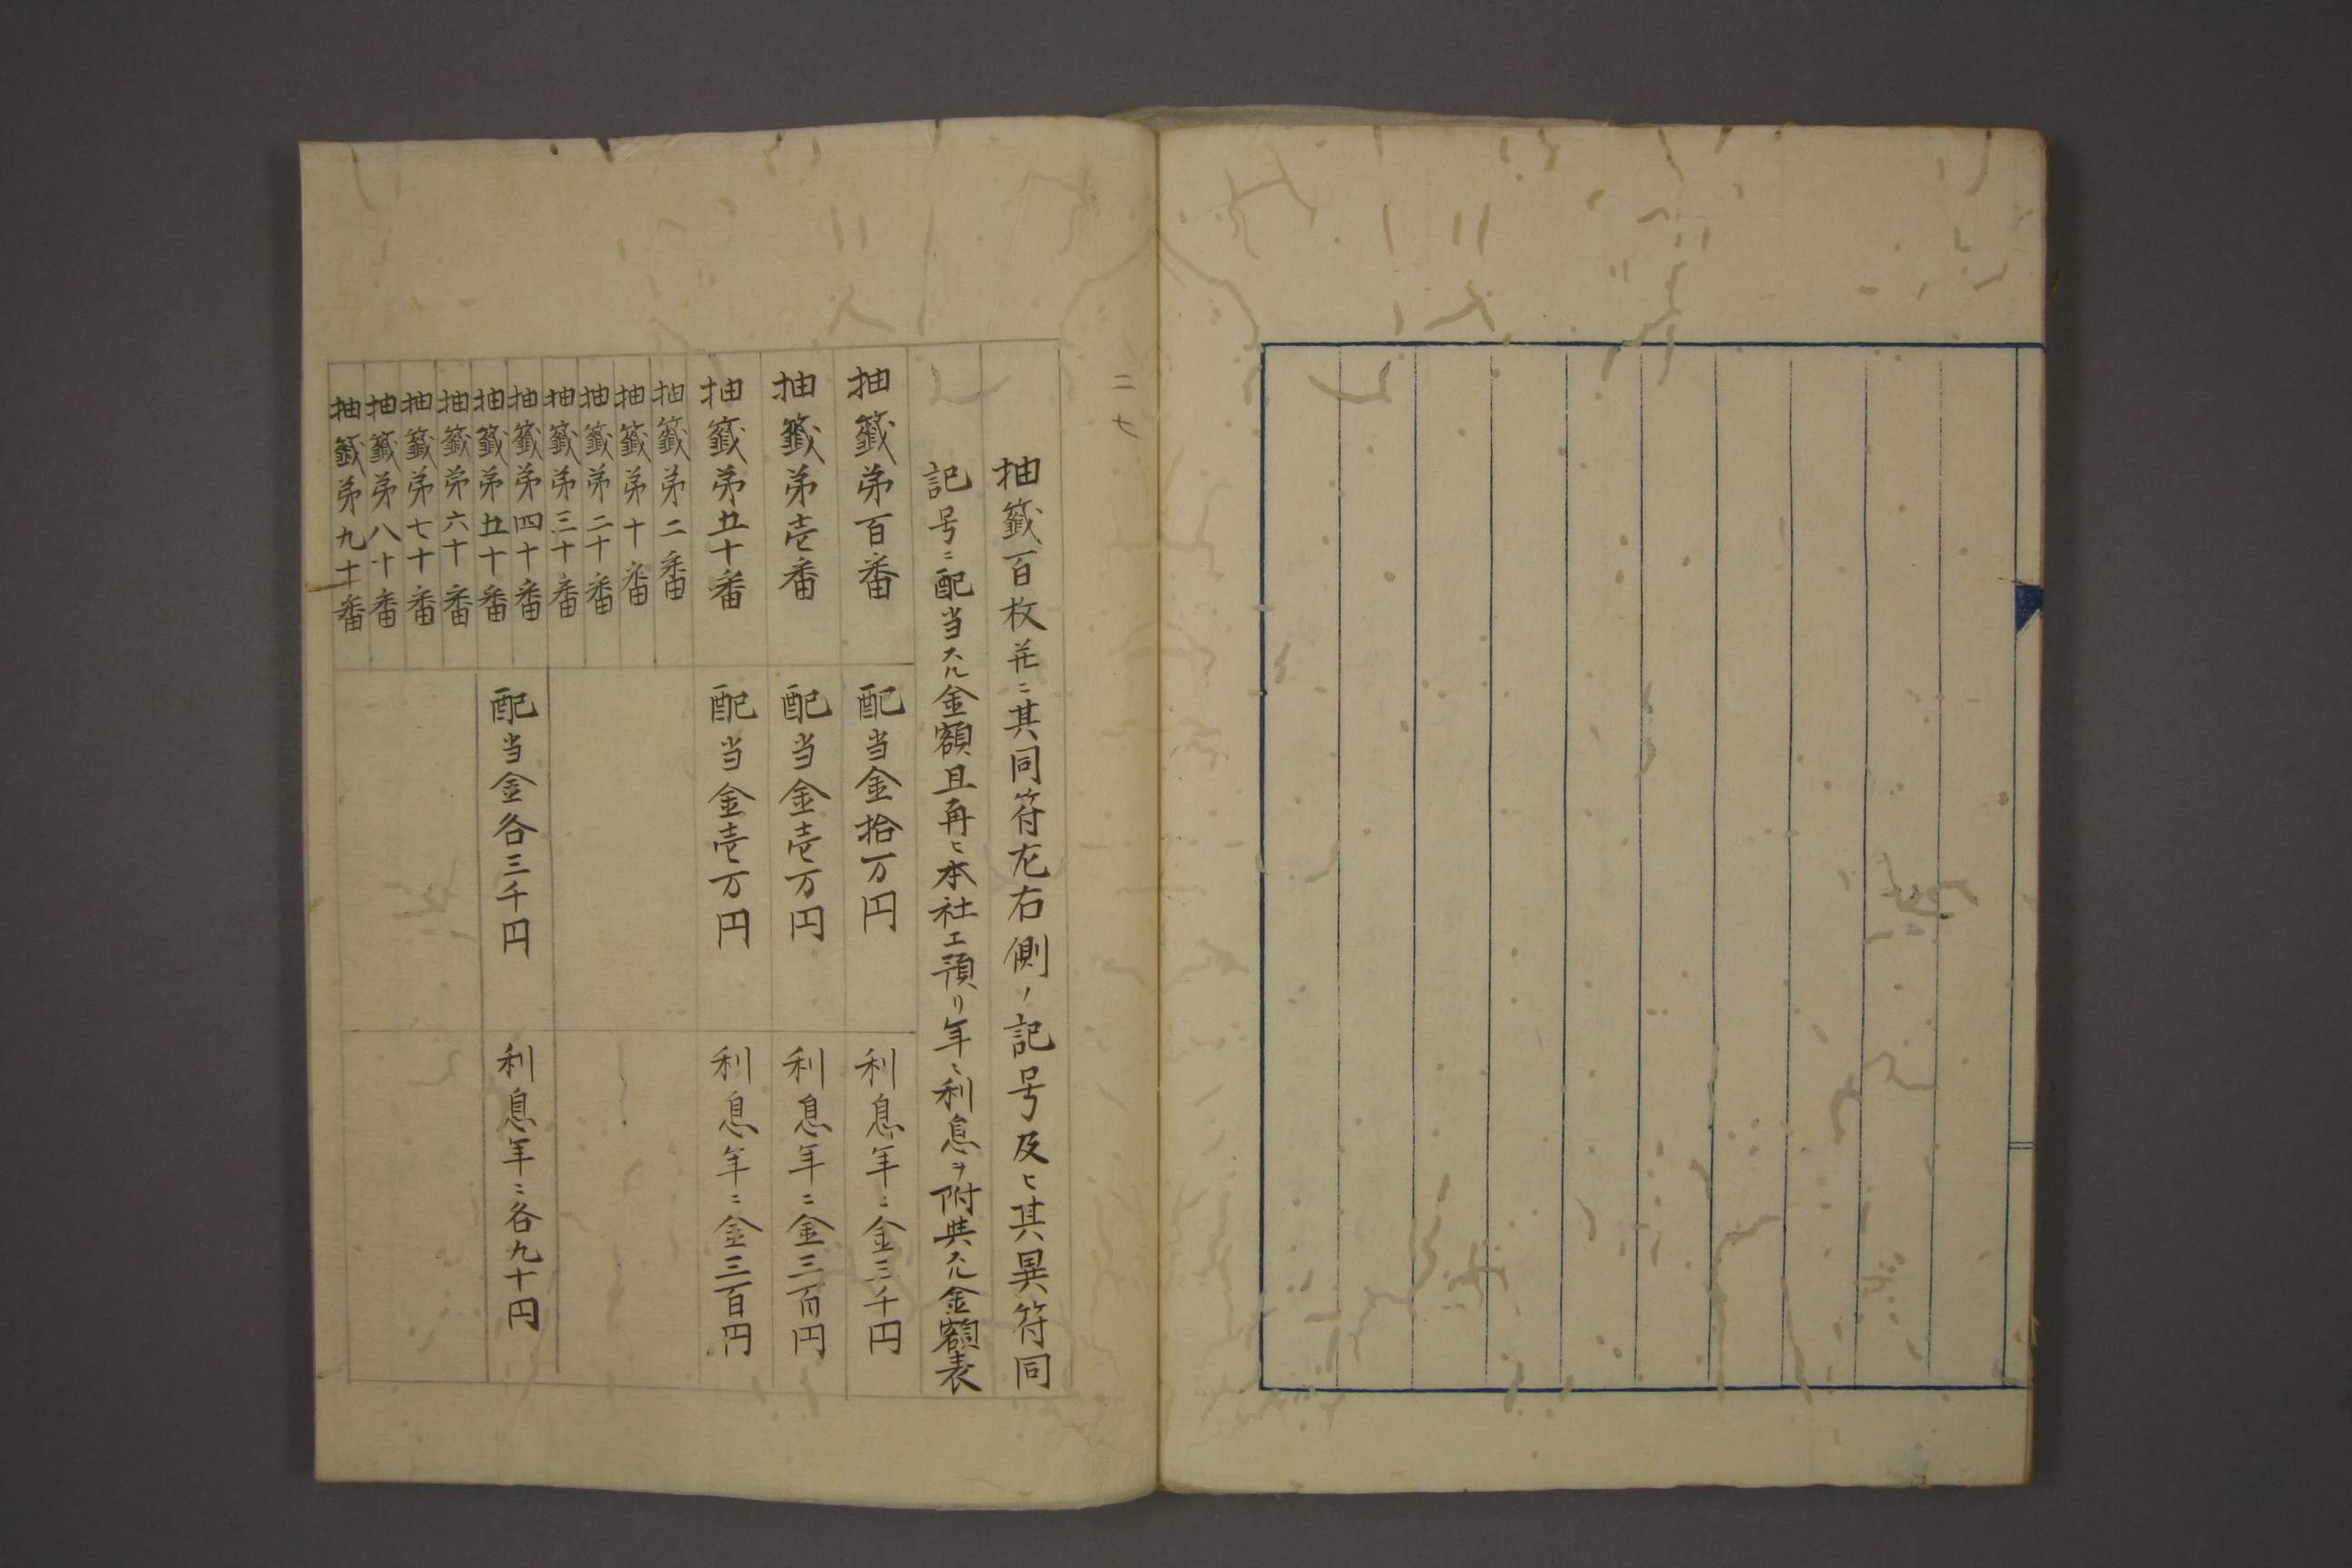 二七
抽籤百枚並ニ其同符左右側ノ記号及ヒ其異符同
記号ニ配当スル金額且再ヒ本社エ預リ年ニ利息ヲ附与スル金額表
抽籤第百番 配当金拾万円 利息年ニ金三千円
抽籤第壱番 配当金壱万円 利息年ニ金三百円
抽籤第五十番 配当金壱万円 利息年ニ金三百円
抽籤第二番
抽籤第十番
抽籤第二十番
抽籤第三十番
抽籤第四十番
抽籤第五十番 配当金各三千円 利息年ニ各九十円
抽籤第六十番
抽籤第七十番
抽籤第八十番
抽籤第九十番